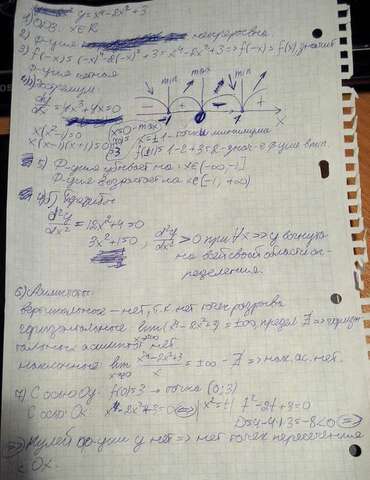 y = x⁴-2x²+3
1) ОДЗ: x∈R
2) Ф-ция непрерывна
3) f(-x) = (-x)⁴-2(-x)²+3 = x⁴-2x²+3 => f(-x) = f(x), значит
Ф-ция четная
4) Экстремум
dy/dx = 4x³+4x=0
x(x²-1)=0
x(x-1)(x+1)=0
x=0 - max
=3
x=±1 - точки минимума
f(±1)=1-2+3=2
min max min
- + - +
-1 0 1 X
5) Ф-ция убывает на x∈(-∞,-1]
Ф-ция возрастает на x∈(-1, +∞)
d²y/dx² = 12x²+4=0
3x²+1=0, d²y/dx² >0 при ∀x => y вогнута
на всей своей области о-
пределения.
6) Асимптоты
вертикальное - нет, т.к. нет точек разрыва
горизонтальное lim(x⁴-2x²+3) = ±∞, предел ∄ => горизон-
тальных асимптот нет
наклонное: lim x→∞ x⁴-2x²+3/x = ±∞ - ∄ => накл. ас. нет.
7) С осью Oy: f(0)=3 → точка (0; 3)
С осью Ox: x⁴-2x²+3=0 <=> | x²=t | t²-2t+3=0
D=4-4·1·3=-8<0 =>
=> Нулей ф-ции y нет => нет точек пересечения
с Ox.